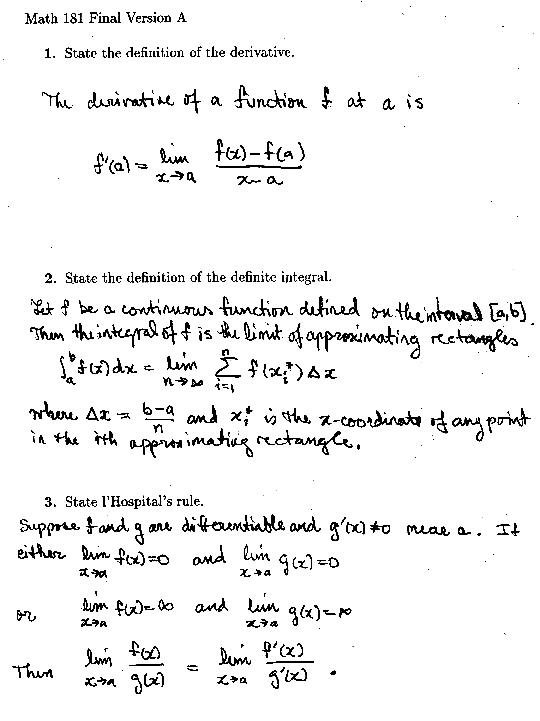 Math 181 Final Version A
1. State the definition of the derivative.
The derivative of a function f at a is
f'(a) = lim x→a (f(x)-f(a))/(x-a)
2. State the definition of the definite integral.
Let f be a continuous function defined on the interval [a,b].
Then the integral of f is the limit of approximating rectangles
∫_a^b f(x)dx = lim n→∞ Σ_{i=1}^n f(x_i^*) Δx
where Δx = (b-a)/n and x_i^* is the x-coordinate of any point
in the ith approximating rectangle.
3. State l'Hospital's rule.
Suppose f and g are differentiable and g'(x)≠0 near a. If
either lim x→a f(x)=0 and lim x→a g(x)=0
or lim x→a f(x)=∞ and lim x→a g(x)=∞
Then lim x→a f(x)/g(x) = lim x→a f'(x)/g'(x) .